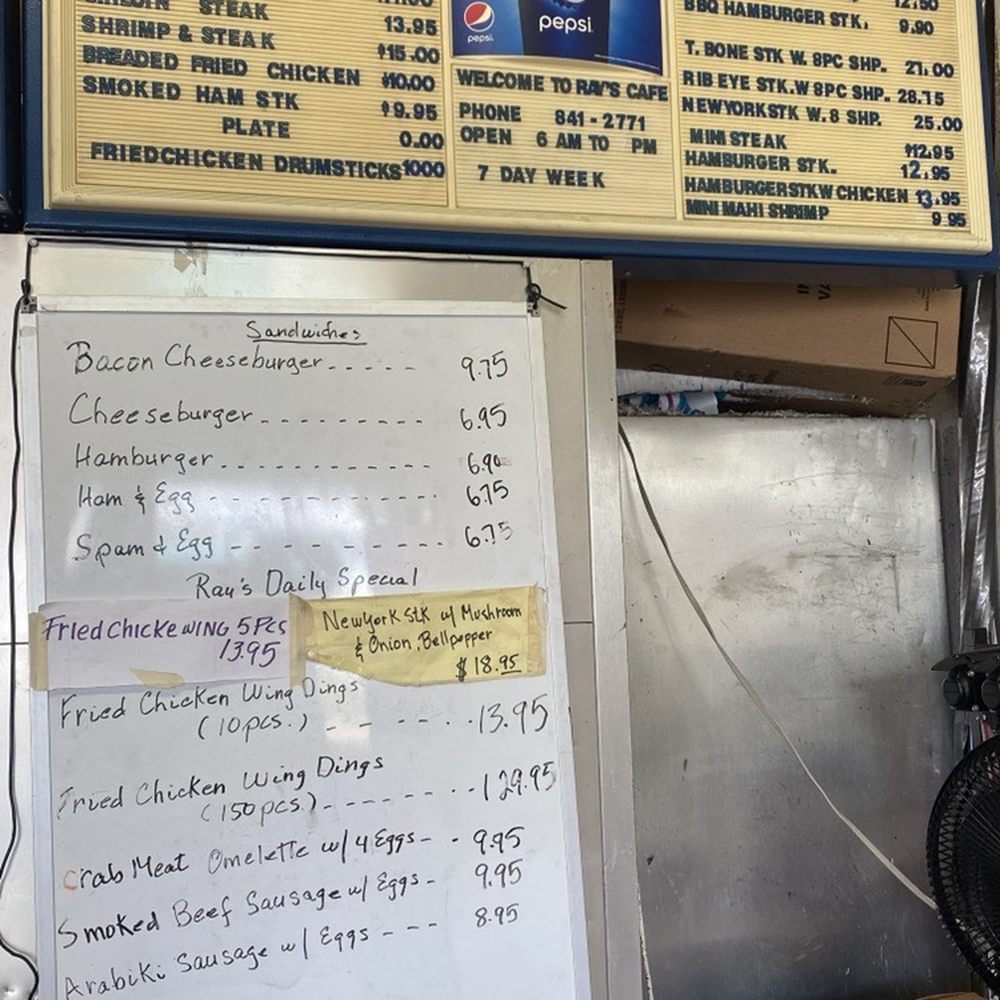 STEAK
SHRIMP & STEAK 13.95
BREADED FRIED CHICKEN $15.00
SMOKED HAM STK $10.00
PLATE $9.95
0.00
FRIEDCHICKEN DRUMSTICKS 1000
pepsi
pepsi.
WELCOME TO RAY'S CAFE
PHONE 841-2771
OPEN 6 AM TO PM
7 DAY WEEK
12.50
BBQ HAMBURGER STK. 9.90
T. BONE STK W. 8PC SHP. 21.00
RIB EYE STK.W 8PC SHP. 28.15
NEWYORKSTK W. 8 SHP. 25.00
MINI STEAK $12.95
HAMBURGER STK. 12.95
HAMBURGERSTKW CHICKEN 13.95
MINI MAHI SHRIMP 9 95
Sandwiches
Bacon Cheeseburger..... 9.75
Cheeseburger......... 6.95
Hamburger.......... 6.90
Ham & Egg ---------- 6.75
Spam & Egg -------- 6.75
Ray's Daily Special
Fried Chicke WING 5 Pcs
13.95
NewYork Stk w/ Mushroom
& Onion, Bellpepper
$18.95
Fried Chicken Wing Dings
(10 pcs.) - - - - - 13.95
Fried Chicken Wing Dings
(150 pcs.) - - - - - - - 129.95
Crab Meat Omelette w/ 4 Eggs - - 9.95
Smoked Beef Sausage w/ Eggs - 9.95
Arabiki Sausage w/ Eggs - - - 8.95